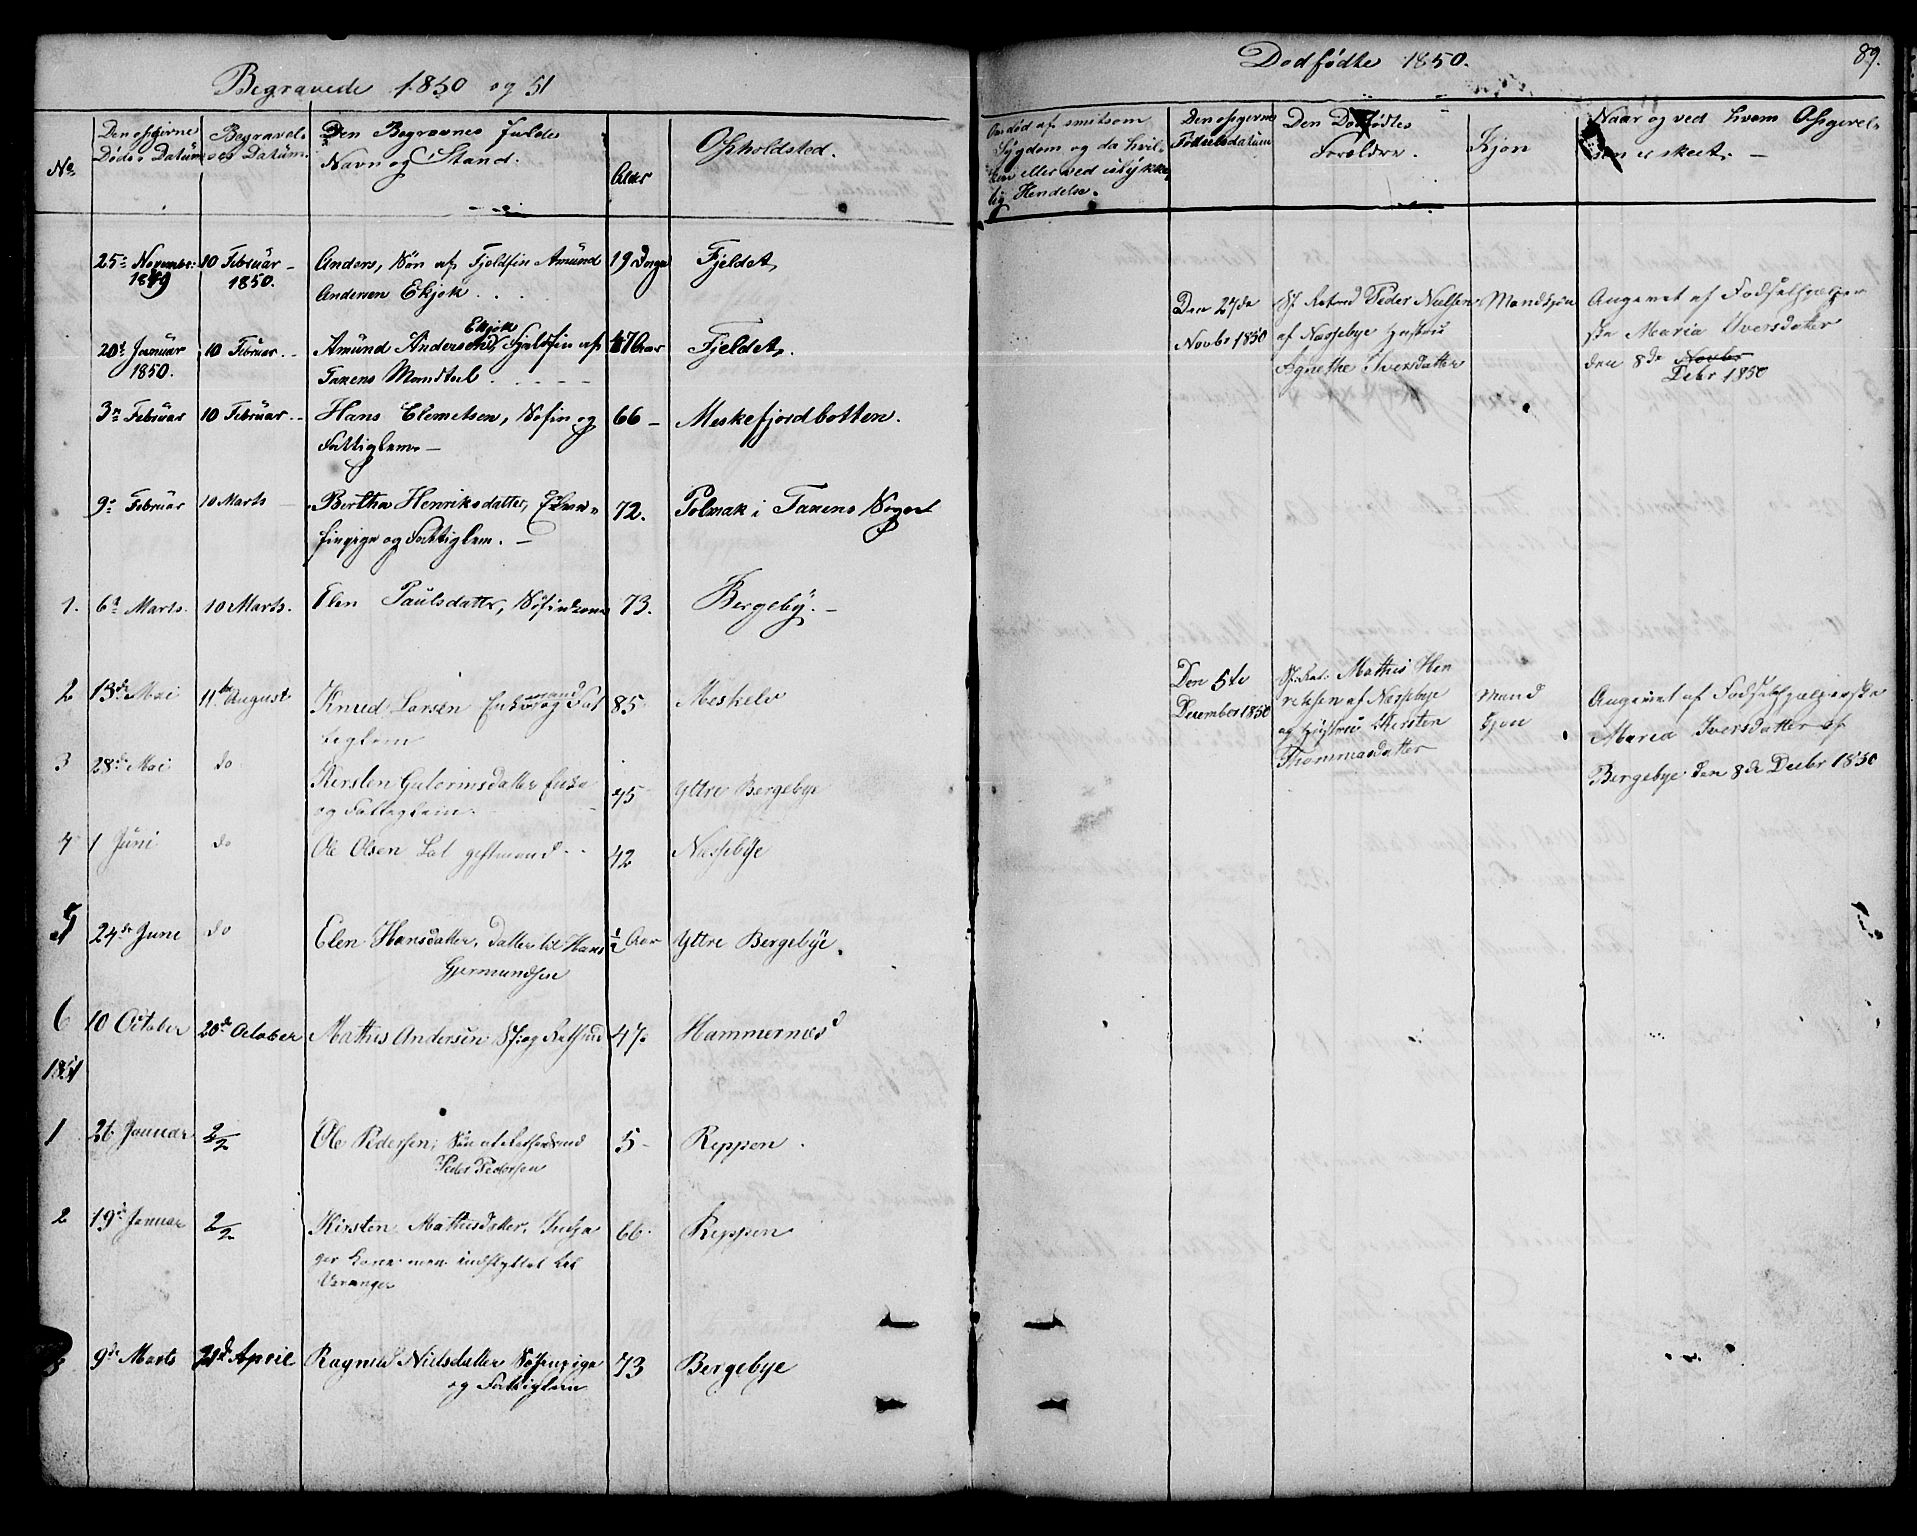 Begravede 1850 og 51
No.
Den opgivne
Døds Datum
Begravel-
ses Datum.
Den Begravnes fulde
Navn og Stand.
Alder
Opholdsted.
25de November 10 Februar
1849 1850.
Anders, Søn af Fjeldfin Amund
Andersen Ekjok . . .
19 Dage
Fjeldet,
20de Januar 10 Februar
1850.
Ekjok
Amund Andersen, Fjeldfin af
Tanens Mandtal
Aar
Fjeldet,
3die Februar 10 Februar
Hans Clemetsen, Søfin og
Fattiglem
66
Meskefjordbotten.
9de Februar 10 Marts
Bertha Henriksdatter,
og Fattiglem.
72.
Polmak i Tanens Sogn
1. 6te Marts. 10 Marts. Elen Paulsdatter, 73. Bergeby.
2 13de Mai 11te August Knud Larsen Enkemand og Fat
tiglem
85 Meskelv
3 28de Mai do
Kirsten Gulormsdatter Enke
og Fatteglem.
75 Yttre Bergebye
4 1 Juni do Ole Olsen Lat giftmand 42 Næssebye
5 24de June do Elen Hansdatter, datter til Hans
Gjermundsen
½ Aar Yttre Bergebye.
6 10 October 20de October Mathis Andersen, Sf: og Fastbd 47 Hammernæs
1851
1 26 Januar 2/2 Ole Pedersen, Søn af
Peder Pedersen
5 Reppen.
2 19de Januar 2/2 Kirsten Mathisdatter,
indflyttet til
Varanger
66. Reppen
3 9de Marts 21de April Ragnild Nielsdatter Søfinpige
og Fattiglem
73 Bergebye
Dødfødte 1850.
89.
Om død af smitsom
Sygdom og da hvil-
ken eller ved ulykke-
lig Hendelse.
Den opgivne
Fødselsdatum
Den Dødfødtes
Forældre.
Kjøn
Naar og ved hvem Opgivel-
sen er skeet.
Den 27de
Novbr 1850
Peder Nielsen
af Næssebye Hustru
Agnethe Iversdatter
Mandkjøn
Angivet af Fødselhjælper
ske Maria Iversdatter
den 8de Novbr
Debr 1850
Den 5te
December 1850
Mathis Hen
reksen af Næssebye
og Hustru Kersten
Thommasdatter
Mand
Kjøn
Angivet af Fødselhjælperske
Maria Iversdatter af
Bergebye den 8de Decbr 1850